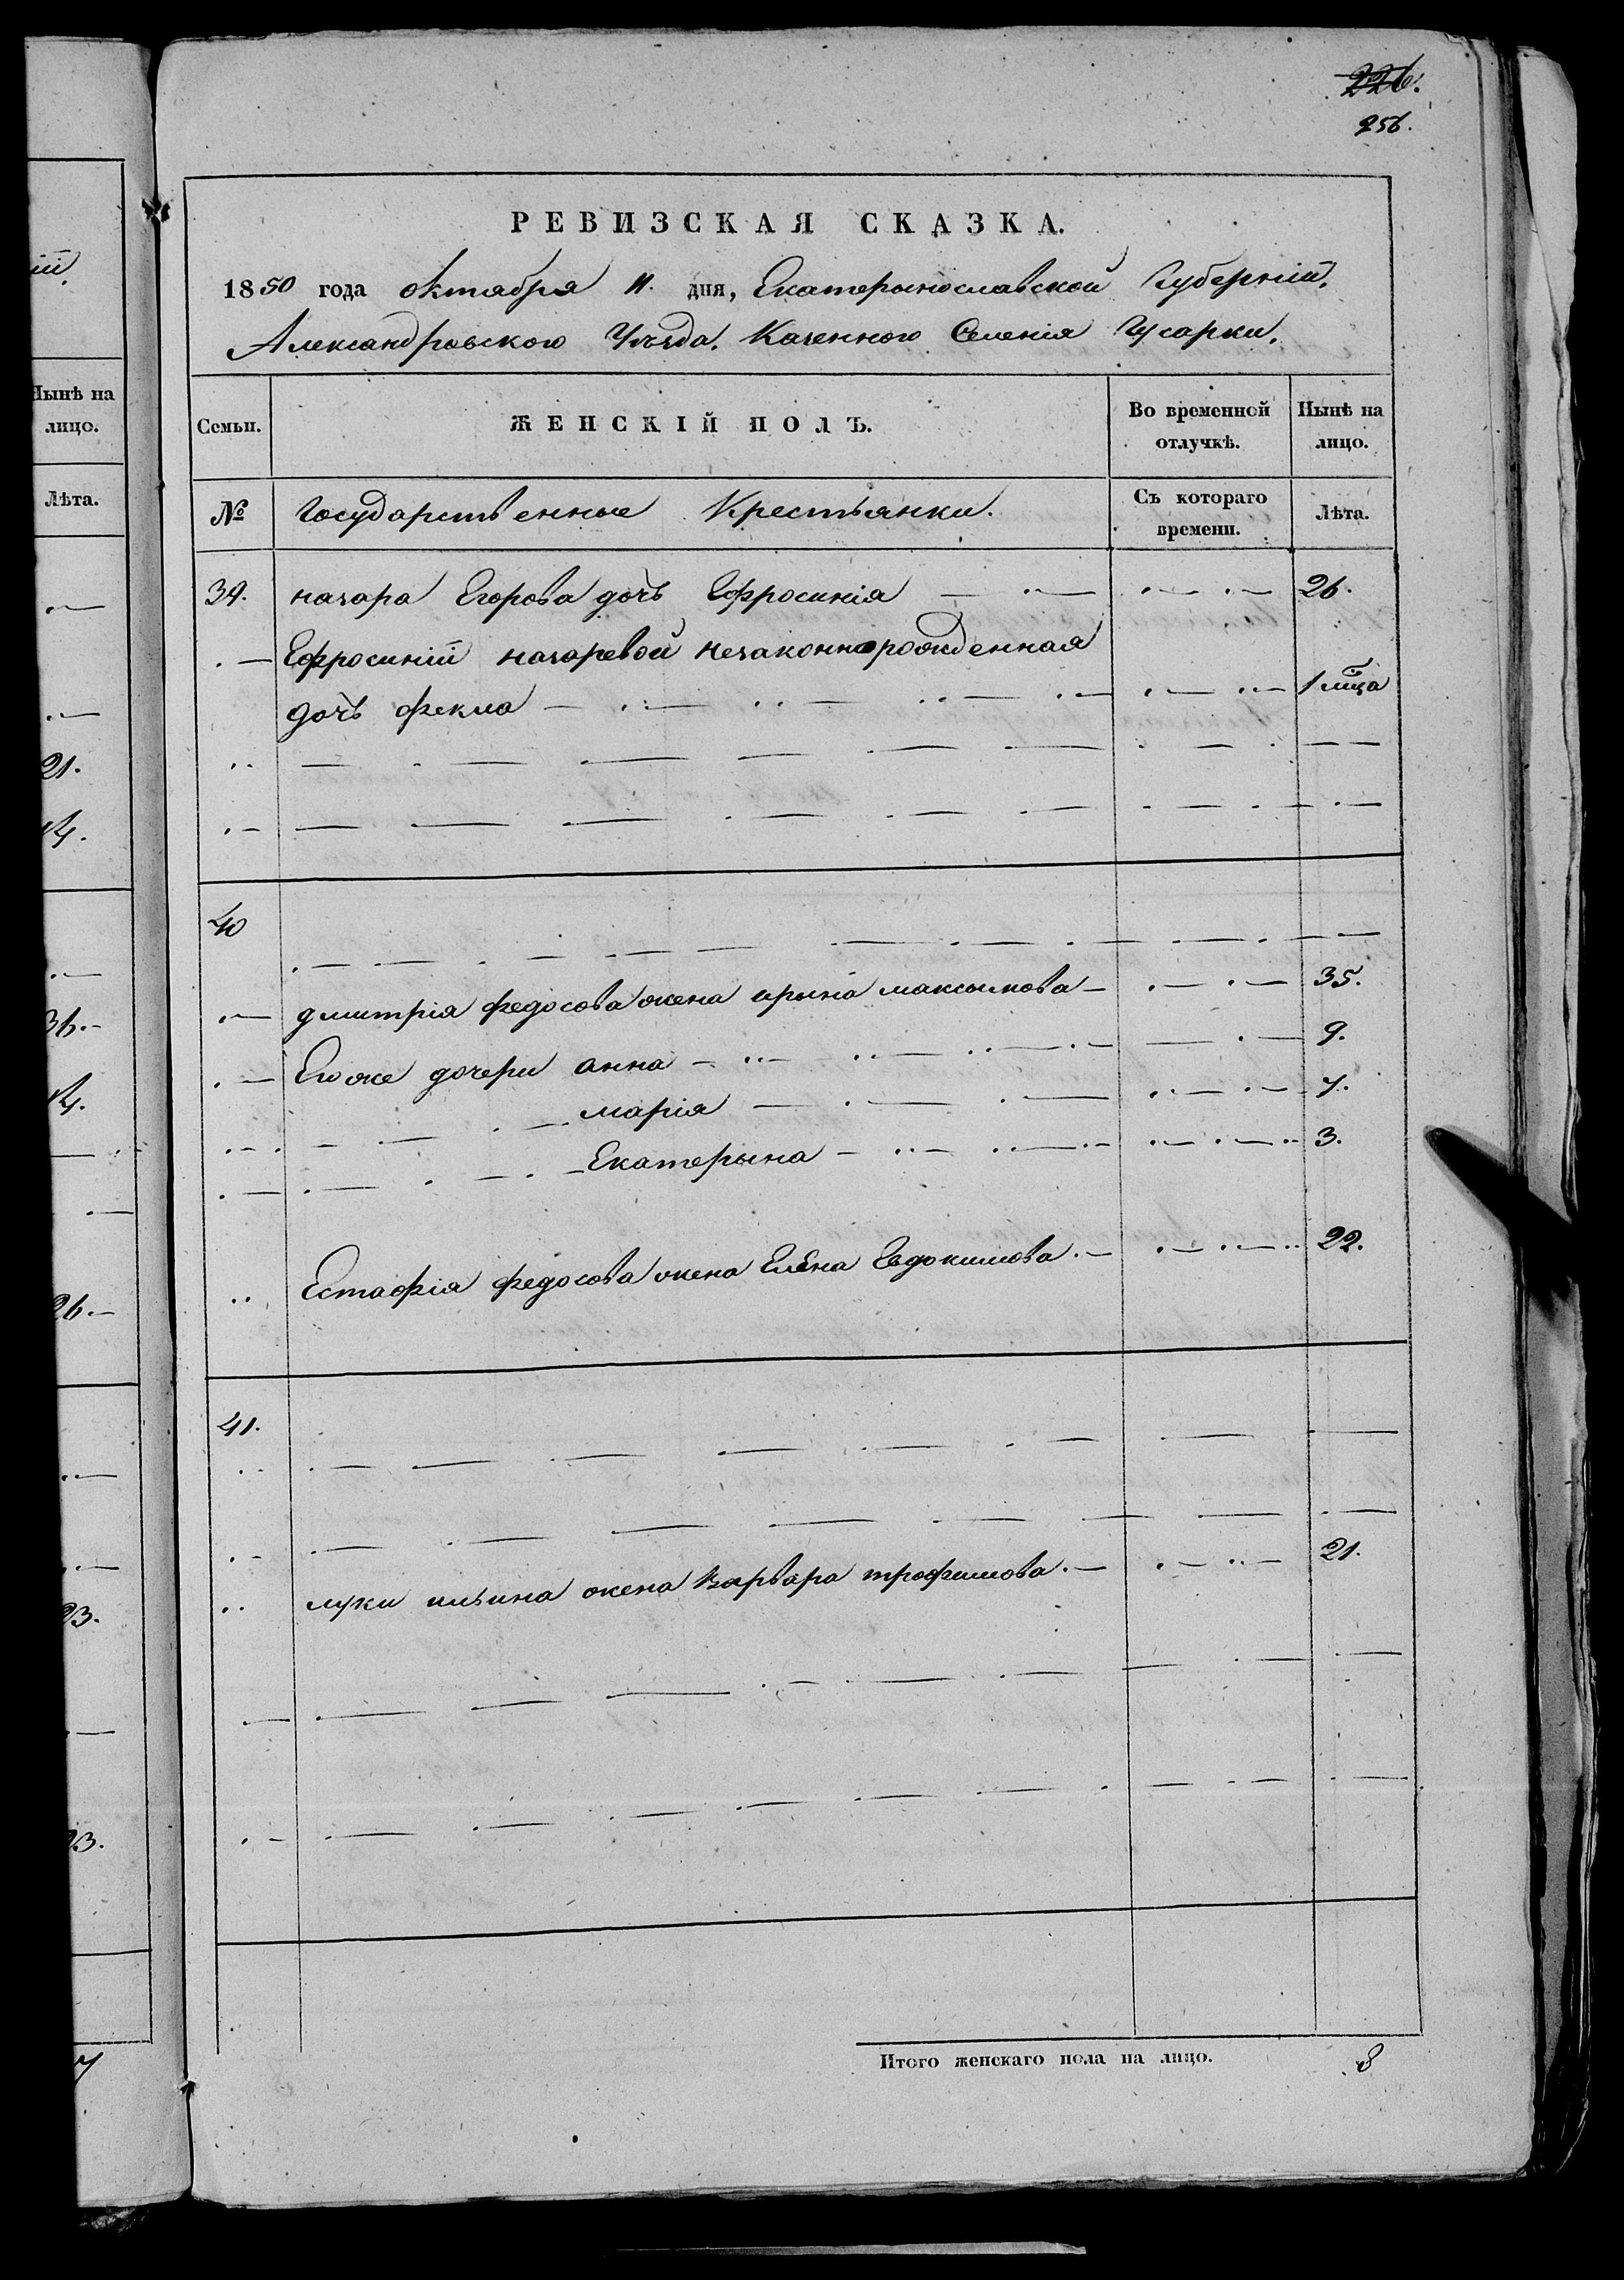 226.
256.
РЕВИЗСКАЯ СКАЗКА.
1850 года октября 11. дня, Екатерынославской Губерніи,
Александровского Уѣзда, Казенного Селенія Гусарки,
Семьи.
ЖЕНСКІЙ ПОЛЪ.
Во временной отлучкѣ.
Нынѣ на лицо.
№
Государственные Крестьянки.
Съ котораго времени.
Лѣта.
39. назара Егорова дочь Ефросинія 26.
Ефросиніи назаревой незаконнорожденная
дочь фекла 1 мца
40
дмитрія федосова жена ирына максимова 35.
Его же дочери анна 9.
марія 7.
Екатерына 3.
Естафія федосова жена Елена Евдокимова 22.
41.
луки ильина жена варвара трофимова 21.
Итого женскаго пола на лицо. 8
ій,
Нынѣ на
лицо.
Лѣта.
21.
14.
36.
14.
26.
23.
23.
7